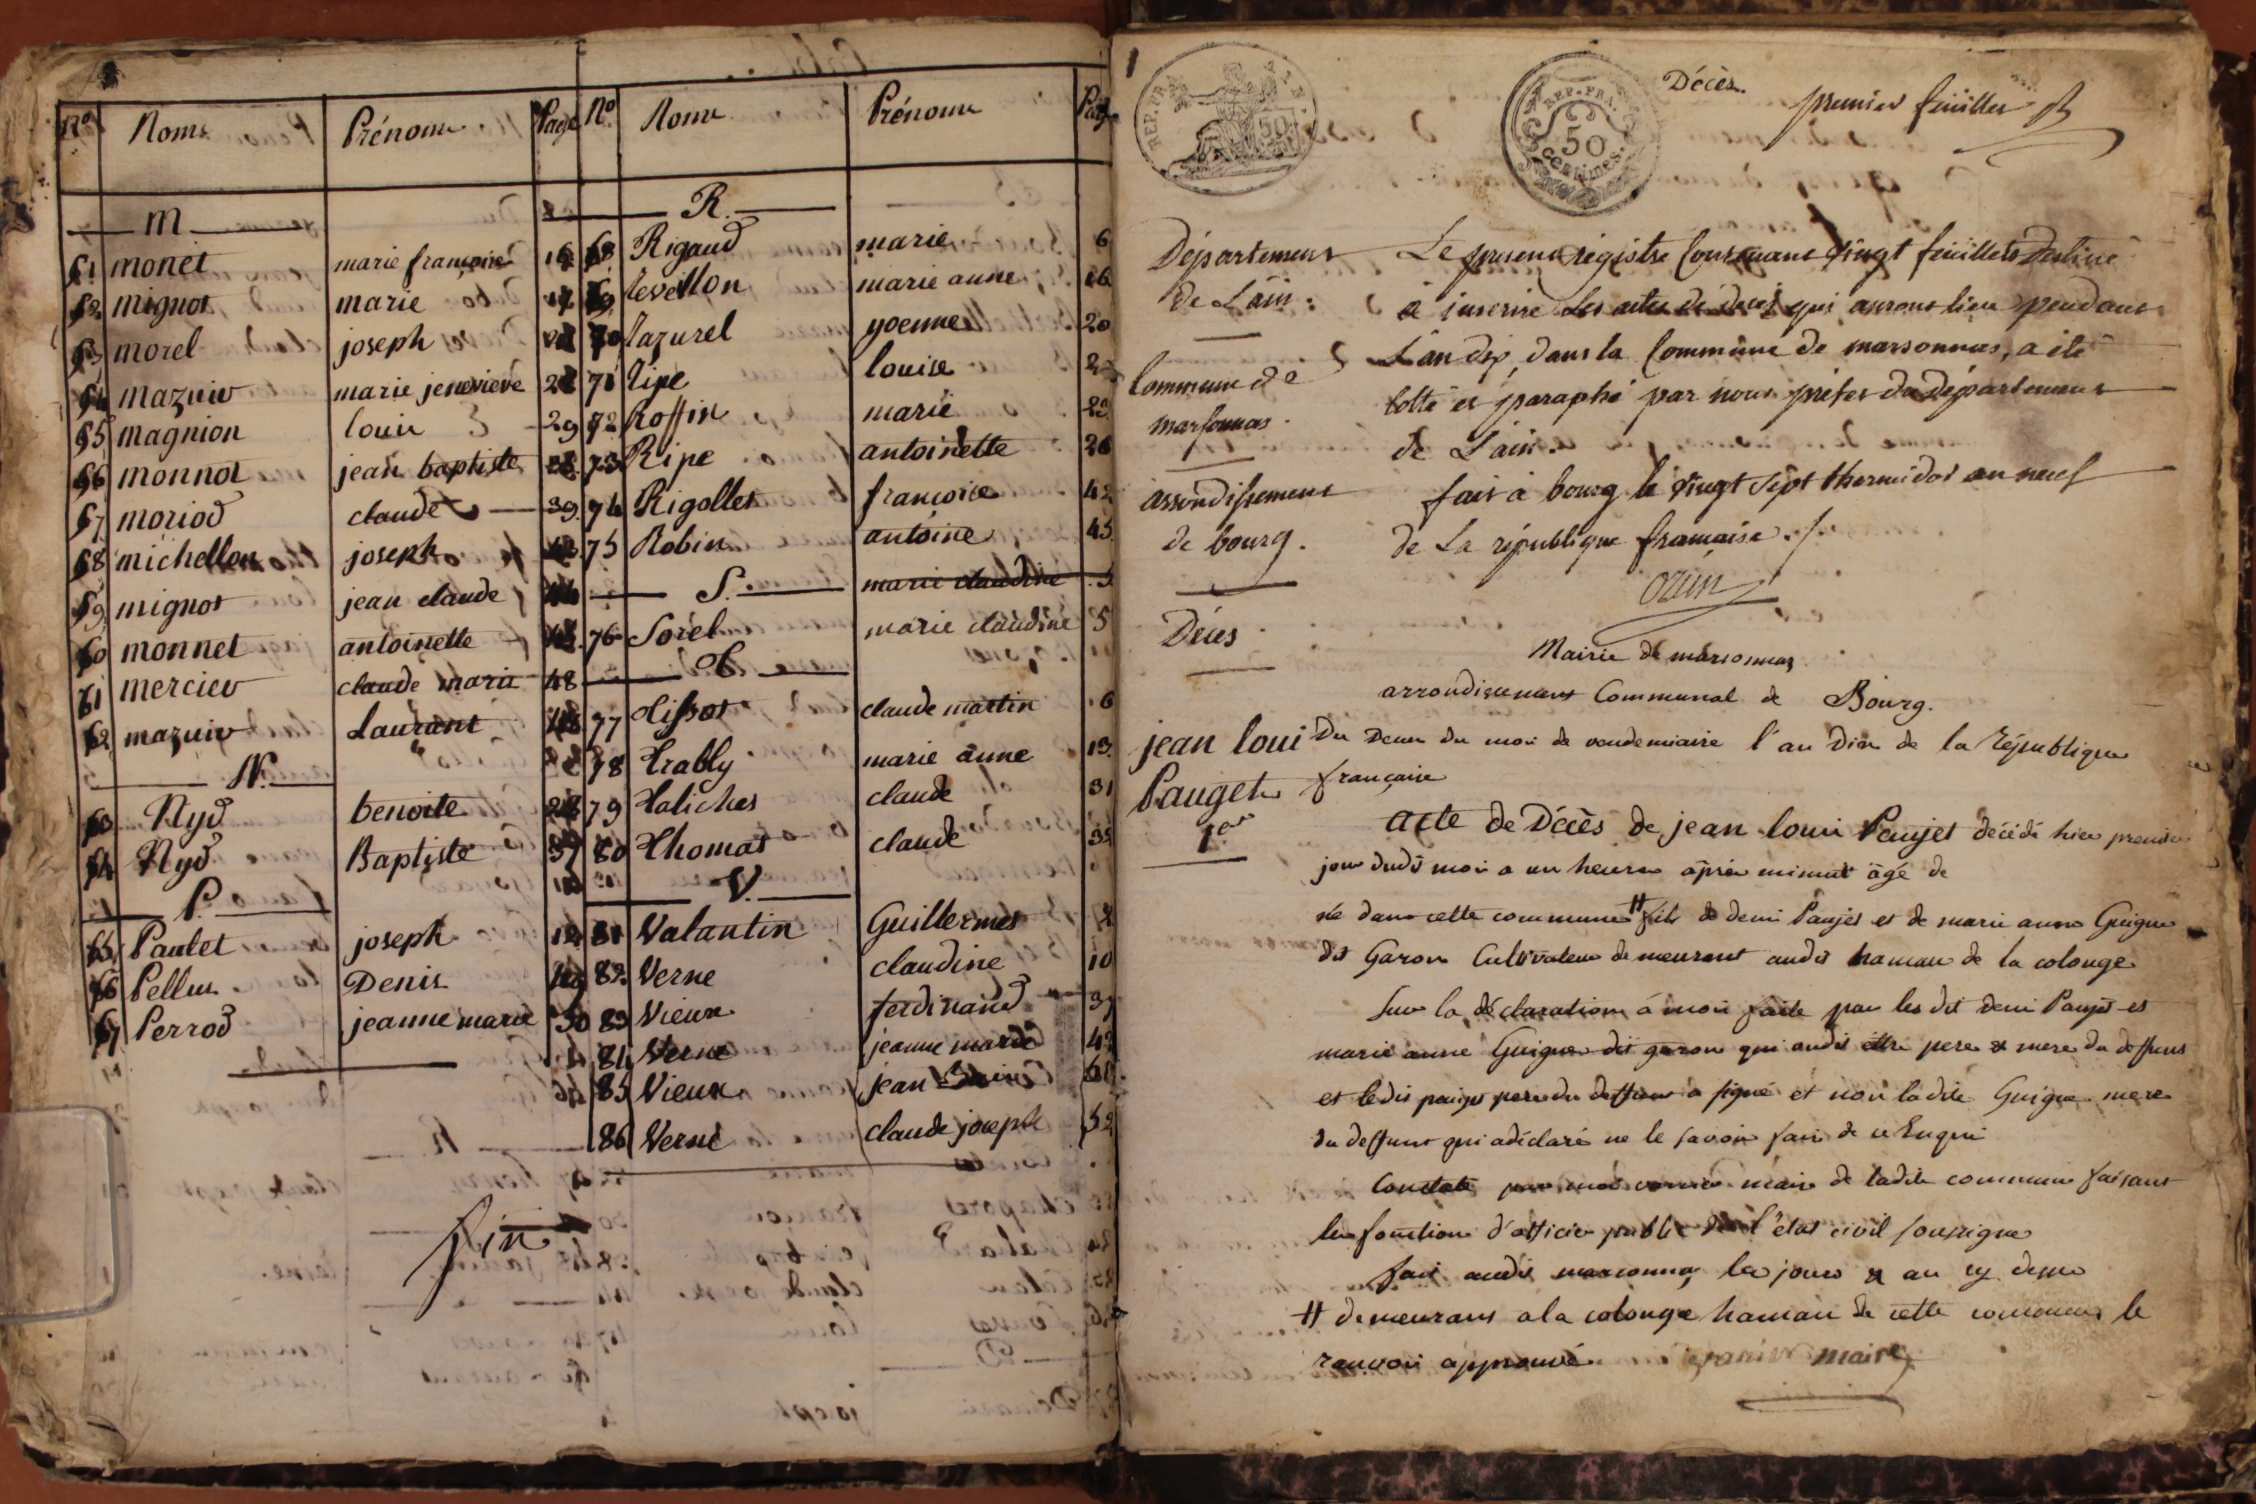 N.º Noms Prénoms Page
M
51 monet marie françoise 16
52 mignot marie
53 morel joseph
54 mazuir marie jenevieve
55 magnion louis 29
56 monnot jean baptiste
57 moriod claude 39
58 michellon joseph
59 mignot jean claude
60 monnet antoinette
61 mercier claude marie 48
62 mazuir Laurant
N.
63 Nyd benoite
64 Nyd Baptiste 37
P.
65 Paulet joseph
66 Pellus Denis
67 Perrod jeanne marie 50
fin
N.º Noms Prénoms Page
R.
68 Rigaud marie 6
69 Reveillon marie anne 16
70 Razurel yoenne 20
71 Ripe louise
72 Roffin marie
73 Ripe antoinette 26
74 Rigollet françoise 42
75 Robin antoine 45
S. marie claudine 5
76 Sorel marie claudine 5
T
77 Tissot claude martin 6
78 Trably marie anne 13
79 Taliches claude 31
80 Thomas claude
V.
81 Valantin Guillermes
82 Verne claudine 10
83 Vieux ferdinand 37
84 Verne jeanne marie 42
85 Vieux jean
86 Verne claude joseph 52
REP. FRA.
50
REP. FRA.
50
centimes.
Décès.
premier feüillet
Département
de L'ain.
Commune de
marsonnas.
arrondissement
de bourg.
Décès
Le present régistre Contenant vingt feüillets Destiné
à inscrire Les actes de décès qui auront lieu pendant
L'an dix, dans la Commune de marsonnas, a été
Cotté et paraphé par nous préfet du département
de L'ain.
fait à bourg le vingt sept thermidor an neuf
de La république française ./.
ozun
Mairie de marsonnas
arrondissement Communal de Bourg.
jean loui
Pauget
1er
Du Deux du moi de vendemiaire l'an Dix de la République
française
acte de Décès de jean loui Paujet décédé hier premier
jour dudi moi a un heure aprè minuit âgé de
né dans cette commune # fils de deni Paujet et de marie anne Guigue
dit Garon Cultivateur demeurant audit hamau de la colonge
Sur la déclaration à moi faite par les dit deni Paujet et
marie anne Guigue dit garon qui ondit être pere & mere du deffunt
et ledit paujet pere du deffunt a signé et non ladite Guigue mere
du deffunt qui a déclaré ne le savoir fair de ce Enqui
Constaté par moi maire de ladite commune faisant
les fonction d'officier public de l'état civil soussigné
fait audit marsonnas les jours & an dessu
# demeurant a la colonge hamau de cette commune le
ranvoi approuvé maire